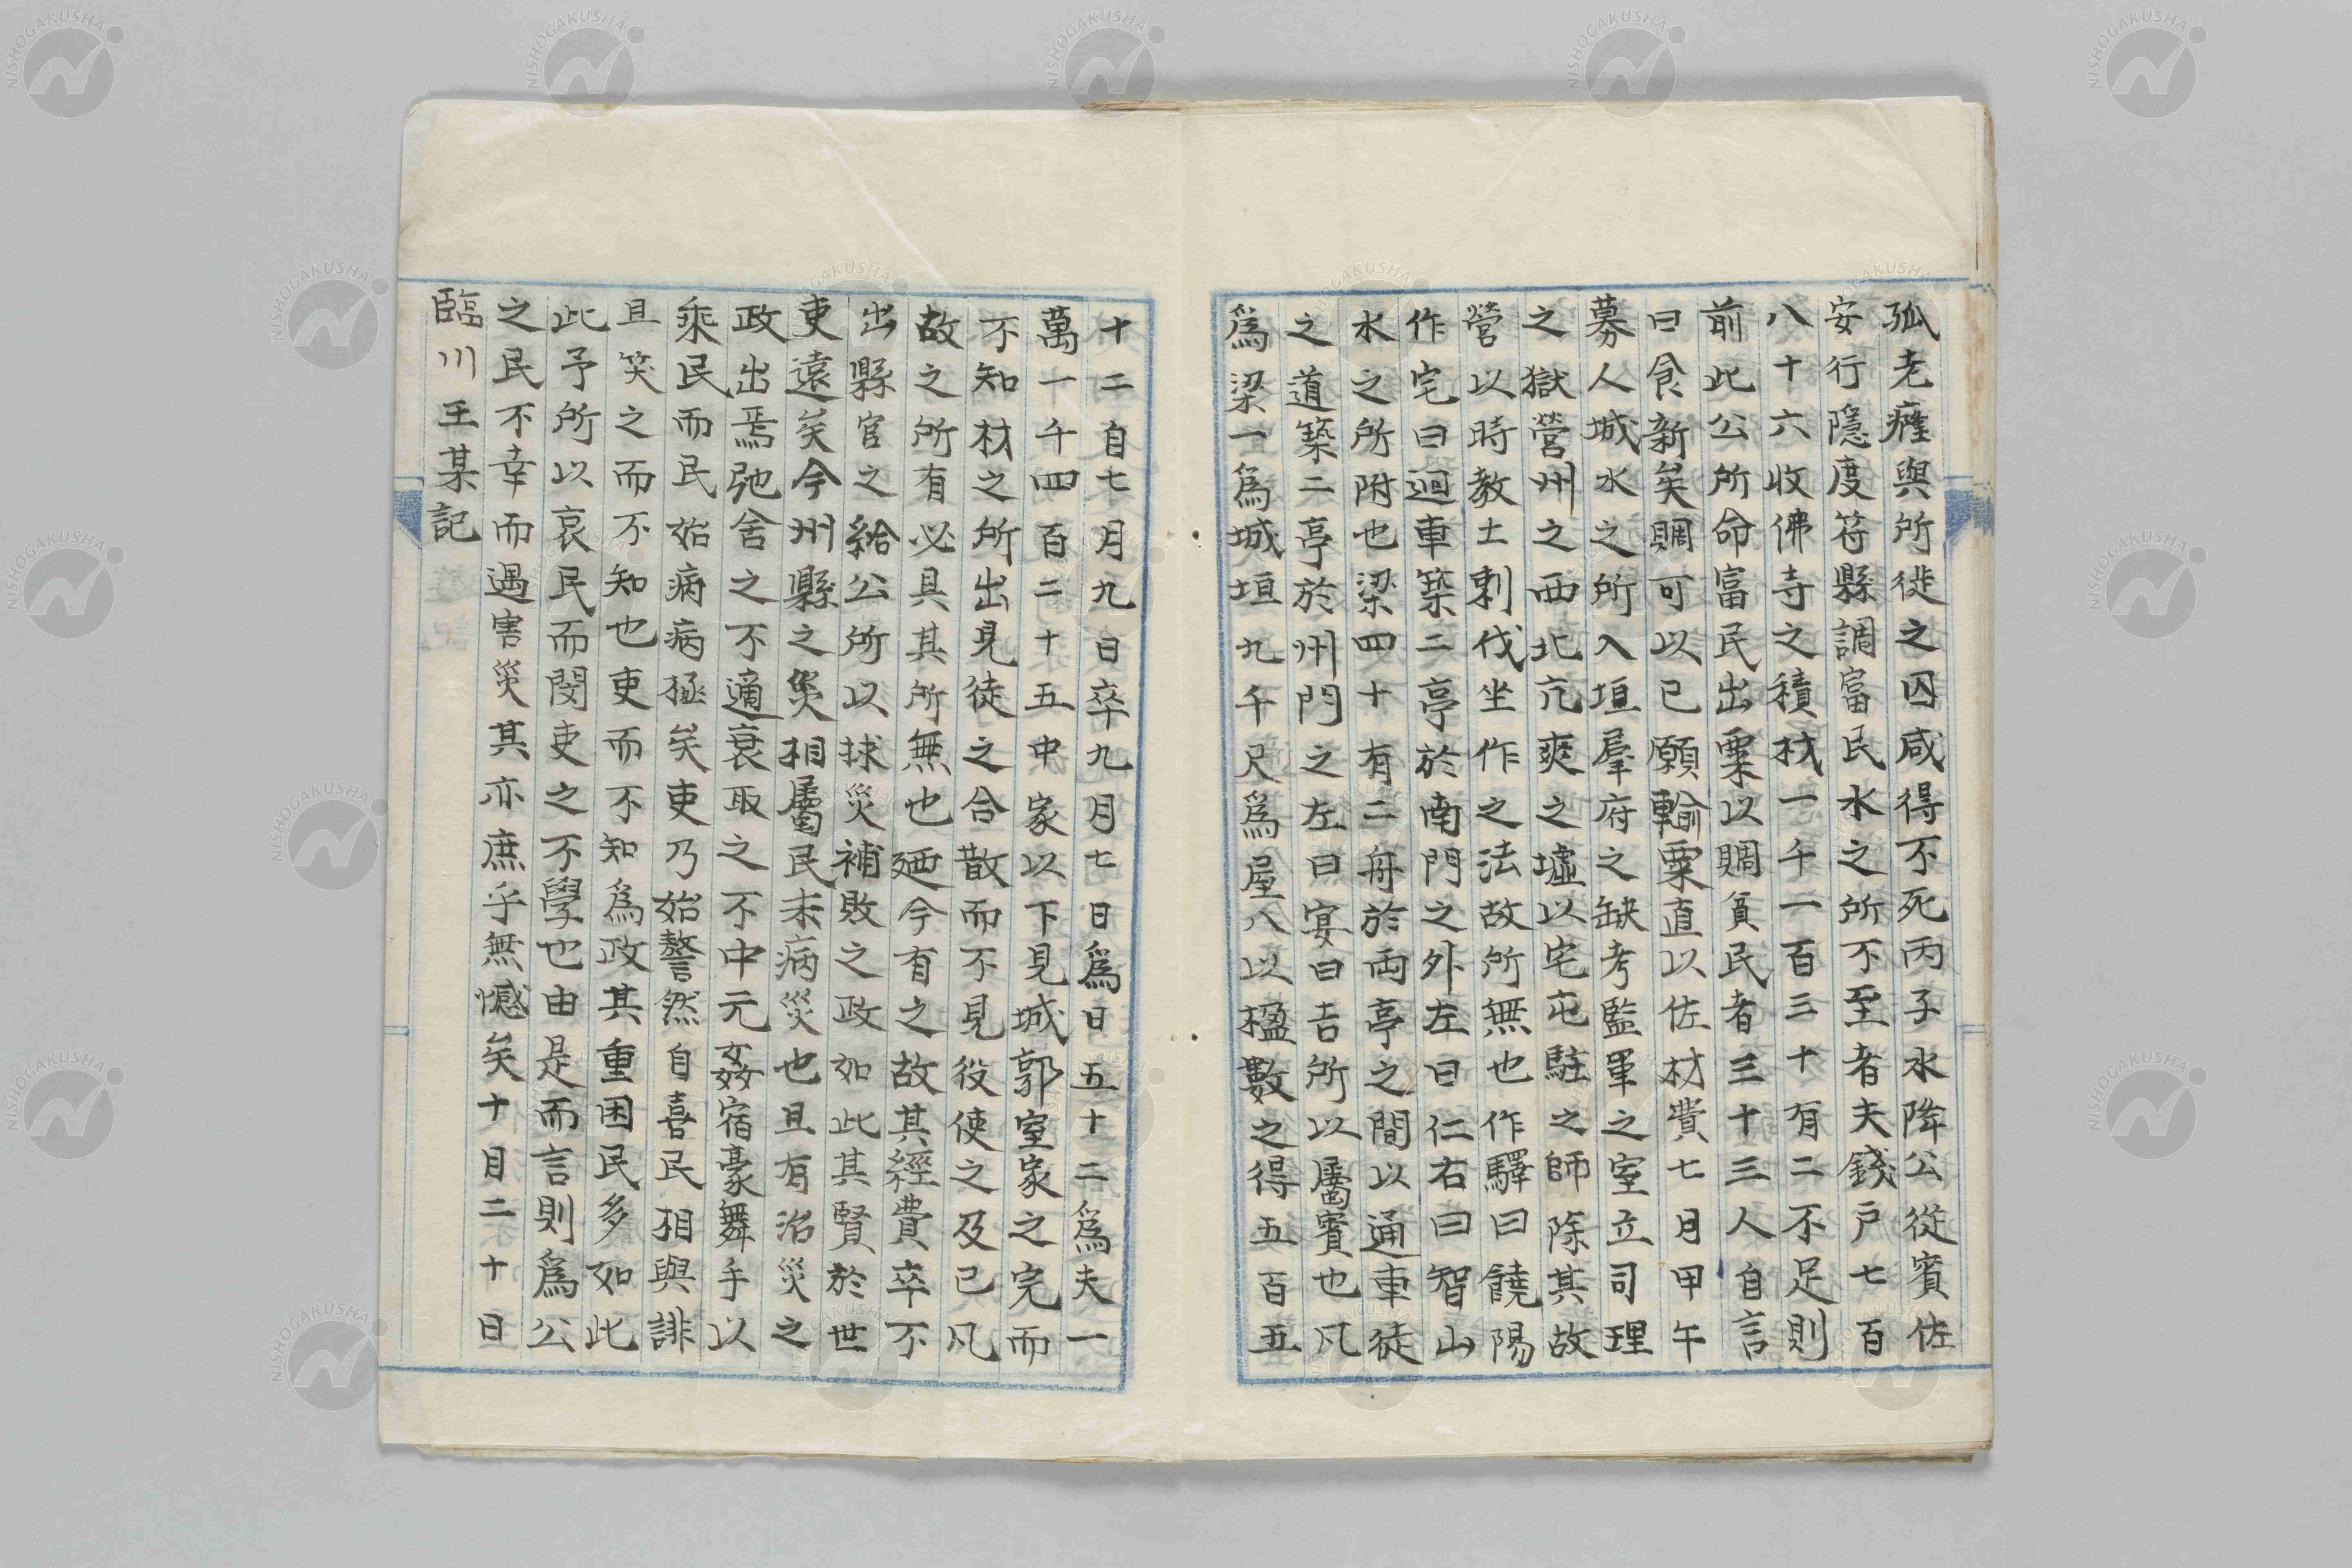 孤老癃與所徙之囚咸得不死丙子水降公從賓佐
安行隱度符縣調富民水之所不至者夫錢戶七百
八十六收佛寺之積材一千一百三十有二不足則
前此公所命富民出粟以賙貧民者三十三人自言
曰食新矣賙可以已願輸粟直以佐材費七月甲午
募人城水之所入垣羣府之缺考監軍之室立司理
之獄營州之西北亢爽之墟以宅屯駐之師除其故
營以時教士刺伐坐作之法故所無也作驛曰饒陽
作宅曰迴車築二亭於南門之外左曰仁右曰智山
水之所附也梁四十有二舟於両亭之間以通車徒
之道築二亭於州門之左曰宴曰吉所以屬賓也凡
為梁一為城垣九千尺為屋八以楹數之得五百五
十二自七月九日卒九月七日為日五十二為夫一
萬一千四百二十五中家以下見城郭室家之完而
不知材之所出見徒之合散而不見役使之及己凡
故之所有必具其所無也廼今有之故其經費卒不
出縣官之給公所以捄災補敗之政如此其賢於世
吏遠矣今州縣之災相屬民未病災也且有治災之
政出焉弛舍之不適裒取之不中元姦宿豪舞手以
乘民而民始病病極矣吏乃始謷然自喜民相與誹
且笑之而不知也吏而不知為政其重困民多如此
此予所以哀民而閔吏之不學也由是而言則為公
之民不幸而遇害災其亦庶乎無憾矣十月二十日
臨川王某記
NISHOGAKUSHA